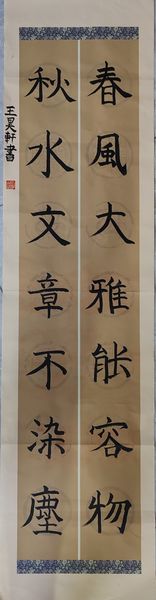 春風大雅能容物
秋水文章不染塵
王昊軒書